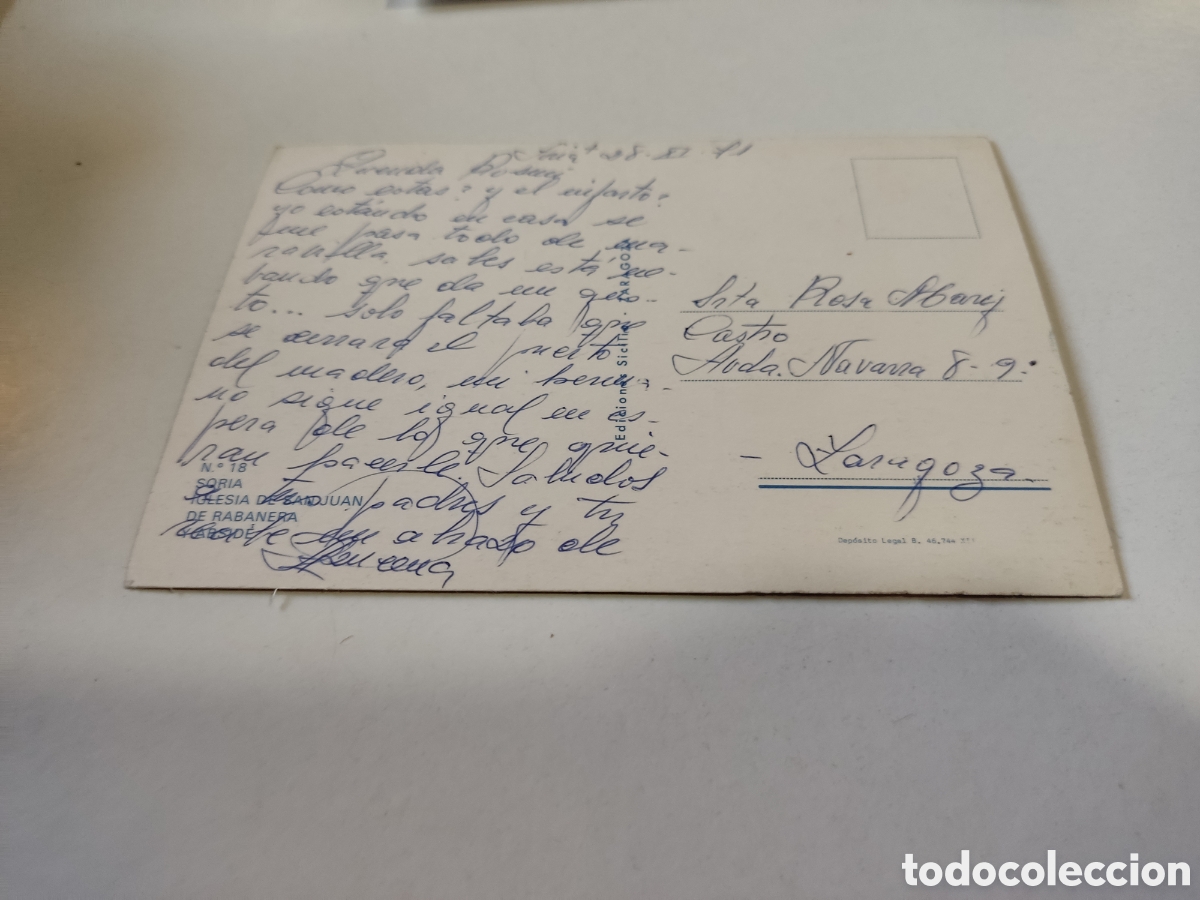 28-XI-71
Querida Rosmi
Como estas? y el infarto?
yo estándo en casa se
me pasa todo de ma-
ravilla. sabes está ne-
bando que da un gus-
to... solo faltaba que
se cerrara el puerto
del madero, mi herma-
no sigue igual en es-
pera de lo que quie-
ran hacerle. Saludos
a tus padres y tu
un abrazo de
N.º 18
SORIA
IGLESIA DE SAN JUAN
DE RABANERA
ABSIDE
Ediciones Sicilia - ZARAGOZA
Srta Rosa
Castro
Avda. Navarra 8-9.
- Zaragoza
Depósito Legal B. 46.744
todocoleccion